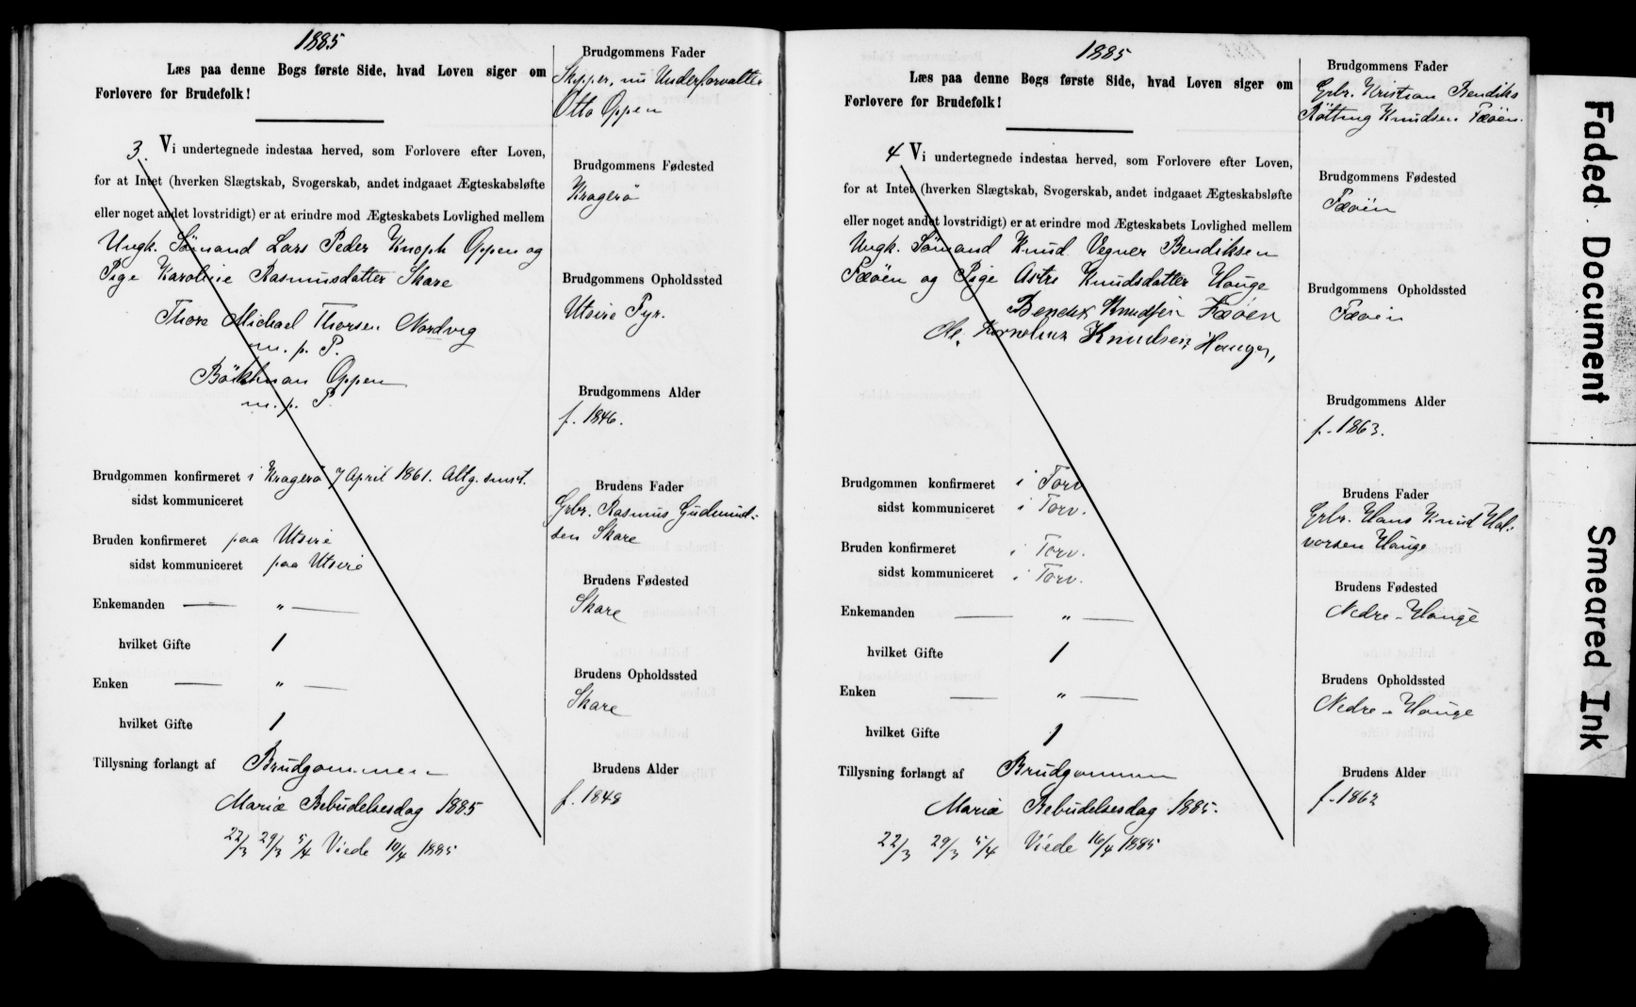 1885
Læs paa denne Bogs første Side, hvad Loven siger om
Forlovere for Brudefolk!
3. Vi undertegnede indestaa herved, som Forlovere efter Loven,
for at Intet (hverken Slægtskab, Svogerskab, andet indgaaet Ægteskabsløfte
eller noget andet lovstridigt) er at erindre mod Ægteskabets Lovlighed mellem
Ungk. Sömand Lars Peder Knoph Oppen og
Pige Karoline Rasmusdatter Skare
Thore Michael Thorsen Nordvig
m. p. P.
Böckman Oppen
m. p. P.
Brudgommen konfirmeret i Kragerö 7 April 1861. Altg. smst.
sidst kommuniceret
Bruden konfirmeret paa Utsire
sidst kommuniceret paa Utsire
Enkemanden — " —
hvilket Gifte 1
Enken — " —
hvilket Gifte 1
Tillysning forlangt af Brudgommen
Mariæ Bebudelsesdag 1885
22/3 29/3 5/4 Viede 10/4 1885
Brudgommens Fader
Skipper, nu Underforvalter
Otto Oppen
Brudgommens Fødested
Kragerö
Brudgommens Opholdssted
Utsire Fyr.
Brudgommens Alder
f. 1846.
Brudens Fader
Grbr. Rasmus Gudmund-
sen Skare
Brudens Fødested
Skare
Brudens Opholdssted
Skare
Brudens Alder
f. 1848
1885
Læs paa denne Bogs første Side, hvad Loven siger om
Forlovere for Brudefolk!
4 Vi undertegnede indestaa herved, som Forlovere efter Loven,
for at Intet (hverken Slægtskab, Svogerskab, andet indgaaet Ægteskabsløfte
eller noget andet lovstridigt) er at erindre mod Ægteskabets Lovlighed mellem
Ungk. Sömand Knud Vegner Bendiksen
Fæöen og Pige Astri Knudsdatter Hauge
Bendik Knudsen Fæöen
Kornelius Knudsen Hauge,
Brudgommen konfirmeret i Torv.
sidst kommuniceret i Torv.
Bruden konfirmeret i Torv.
sidst kommuniceret i Torv.
Enkemanden — " —
hvilket Gifte 1
Enken — " —
hvilket Gifte 1
Tillysning forlangt af Brudgommen
Mariæ Bebudelsesdag 1885.
22/3 29/3 5/4 Viede 16/4 1885
Brudgommens Fader
Grbr. Kristian Bendiks
Knudsen Fæöen.
Brudgommens Fødested
Fæöen
Brudgommens Opholdssted
Fæöen
Brudgommens Alder
f. 1863.
Brudens Fader
Grbr. Hans Knud Hal-
vorsen Hauge
Brudens Fødested
Nedre-Hauge
Brudens Opholdssted
Nedre-Hauge
Brudens Alder
f. 1862
Faded Document
Smeared Ink